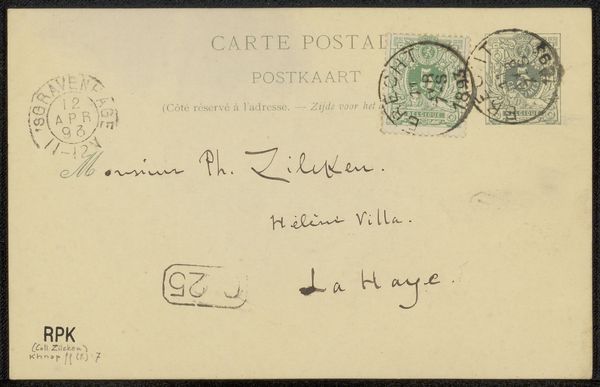 CARTE POSTAL
POSTKAART
(Côté réservé à l'adresse. — Zijde voor het
'SGRAVENHAGE
12
APR
93
11-12
5
BELGIQUE
1893
5
BELGIQUE
1893
Monsieur Ph. Zilcken.
Hélène Villa.
La Haye.
25
RPK
(Coll. Zilcken)
Khnopff (F) 7